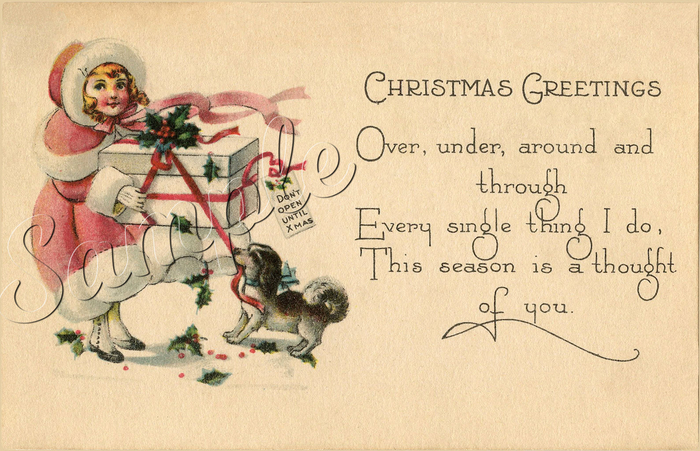 CHRISTMAS GREETINGS
Over, under, around and
through
Every single thing I do,
This season is a thought
of you.
DON'T
OPEN
UNTIL
XMAS
Sample